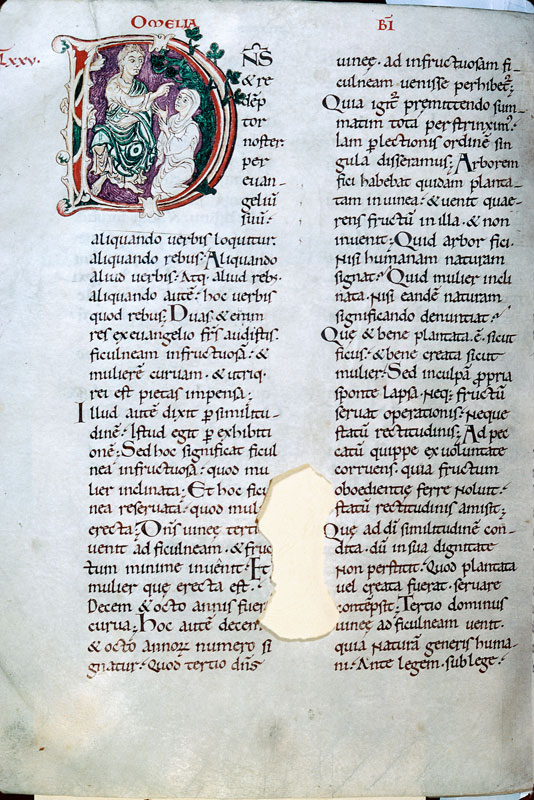 OMELIA
BI
LXXV.
DN̄S
& re
dēp
tor
noster
per
evan-
geliū
suū.
aliquando verbis loquitur.
aliquando rebus; Aliquando
aliud verbis. Atq. aliud reb;
aliquando autē hoc verbis
quod rebus; Duas & enim
res ex evangelio frs̄ audistis.
ficulneam infructuosā. &
mulierē curvam. & utriq.
rei est pietas impensa;
Illud autē dixit p̱ similitu-
dinē. Istud egit p̱ exhibiti
onē; Sed hoc significat ficul
nea infructuosa. quod mu
lier inclinata; Et hoc ficu
nea reservata. quod mul
erecta; Dn̄s vineę terti
venit ad ficulneam. & fruc
tum minime invēnit. Et
mulier quę erecta est.
Decem & octo annis fuer
curva; Hoc autē decem
& octo annoꝝ numero si
gnatur. Quod tertio dn̄s
vineę. ad infructuosam fi-
culneam venisse perhibet᷒;
Quia igit᷒ premittendo sum-
matim tota perstrinxim᷒.
Iam p̱ lectionis ordinē sin
gula disseramus; Arborem
fici habebat quidam planta-
tam in vinea. & venit quae-
rens fructū in illa. & non
invenit; Quid arbor fici.
Nisi humanam naturam
signat? Quid mulier incli
nata. Nisi eandē naturam
significando denuntiat?
Quę & bene plantata .ē. sicut
ficus. & bene creata sicut
mulier. Sed in culpā p̱pria
sponte lapsa. Neq; fructū
servat operationis. Neque
statū rectitudinis; Ad pec
catū quippe ex voluntate
corruens. quia fructum
oboedientię ferre noluit.
statū rectitudinis amisit;
Quę ad dī similitudinē con-
dita. dū in sua dignitate
non perstitit. Quod plantata
vel creata fuerat. servare
contēpsit; Tertio dominus
vineę ad ficulneam venit.
quia naturā generis huma-
ni. Ante legem. sub lege.